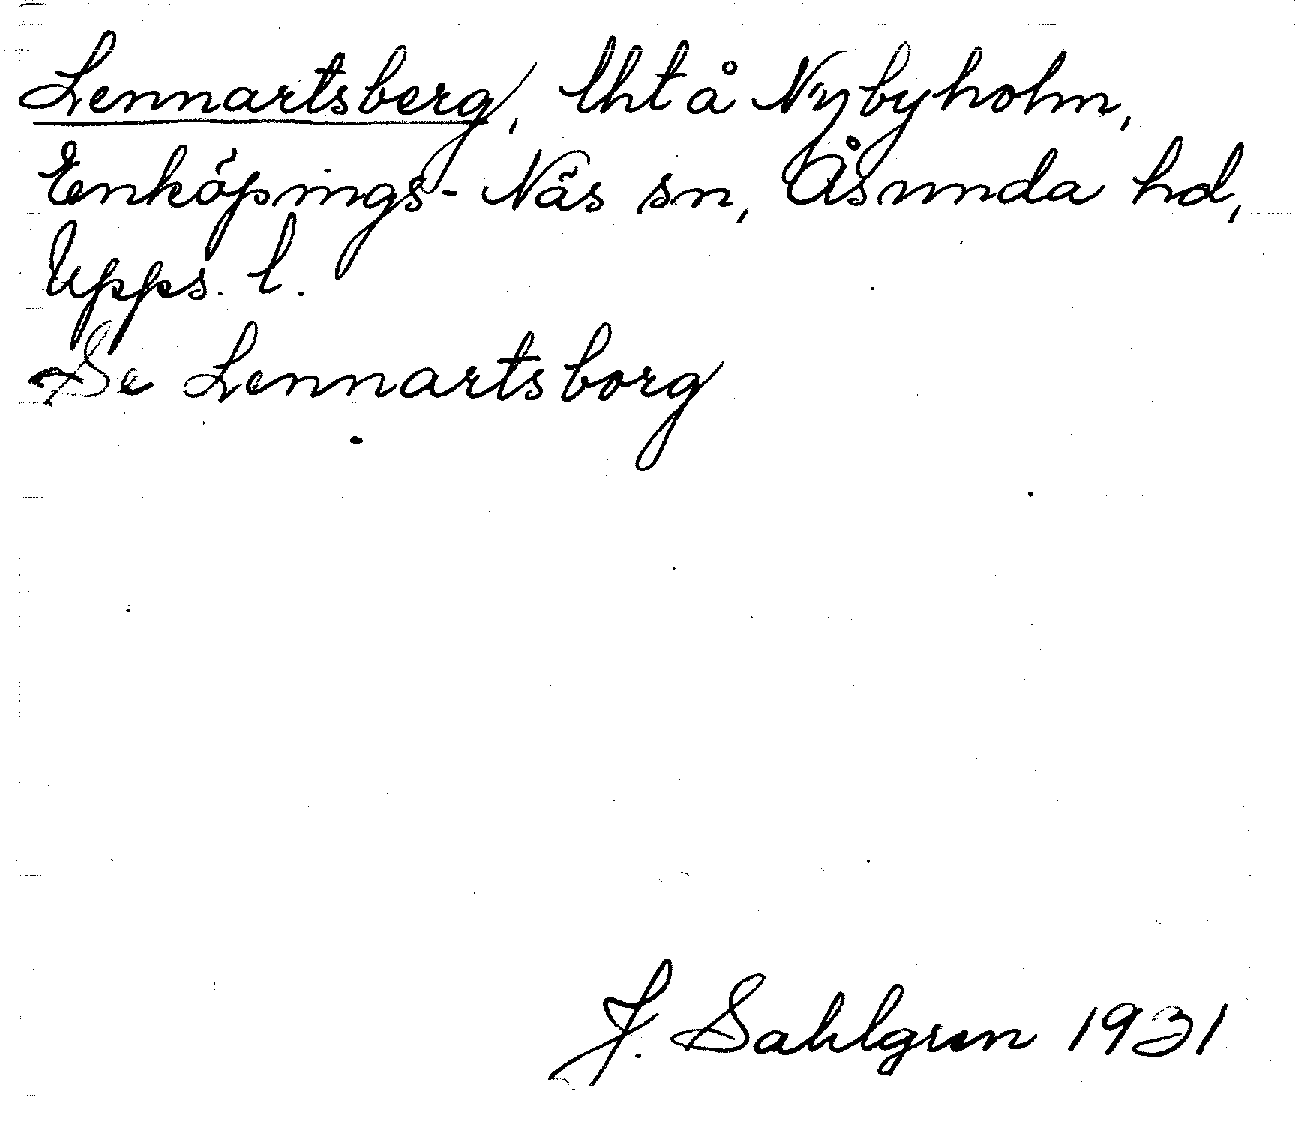 Lennartsberg, lht å Nybyholm,
Enköpings-Näs sn, Åsunda hd,
Upps. l.
Se Lennartsborg
J. Sahlgren 1931